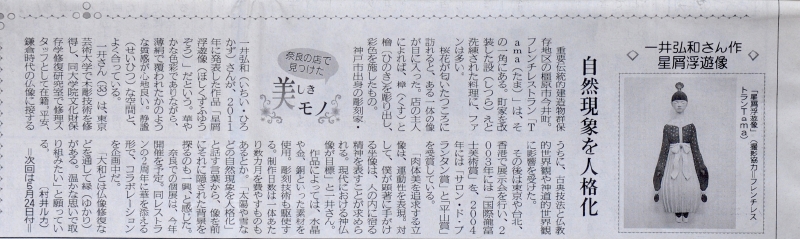 一井弘和さん作
星屑浮遊像
「星屑浮遊像」（撮影協力＝フレンチレス
トランTama）
自然現象を人格化
奈良の店で
見つけた
美しきモノ
重要伝統的建造物群保
存地区の橿原市今井町。
フレンチレストラン「T
ama（たま）」は、そ
の一角にある。町家を改
装した設（しつら）えと
洗練された料理に、ファ
ンは多い。
桜花が匂いたつころに
訪れると、ある一体の像
が目に入った。店の主人
によれば、樟（くす）と
檜（ひのき）を彫り出し、
彩色を施したもの。
神戸市出身の彫刻家・
一井弘和（いちい・ひろ
かず）さんが、2011
年に発表した作品「星屑
浮遊像（ほしくずふゆう
ぞう）」だという。華や
かな色彩でありながら、
薄絹で覆われたかのよう
な質感が心地良い。静謐
（せいひつ）な空間と、
よく合っている。
一井さん（38）は、東京
芸術大学で木彫技術を修
得し、同大学院文化財保
存学修復研究室で修理ス
タッフとして在籍。平安、
鎌倉時代の仏像に接する
うちに、古典技法と仏教
的世界観や神道的世界観
に影響を受けた。
その後は東京や台北、
香港で展示会を行い、2
003年には「国際瀧冨
士美術賞」を、2004
年には「サロン・ド・プ
ランタン賞」と「平山賞」
を受賞している。
「肉体美を追求する立
像は、運動性を表現。対
して、僕が顕著に手がけ
る坐像は、人の内に宿る
精神を表すことが求めら
れる。現代における神仏
像が目標」と一井さん。
作品によっては、水晶
や金、銅といった素材を
使用。彫刻技術も駆使す
る。制作日数は一体あた
り数カ月を費やすものも
あるとか。「太陽や雪な
どの自然現象を人格化」
と話す言葉から、像を前
にそれに隠された背景を
探るのも一興と感じた。
奈良での個展は、今年
開催を予定。同レストラ
ンの2周年に華を添える
形で、コラボレーション
を企画中だ。
「大和とは仏像修復な
どを通して縁（ゆかり）
がある。温かな思いで取
り組みたい」と願ってい
る。　（村井ルカ）
＝次回は6月24日付＝